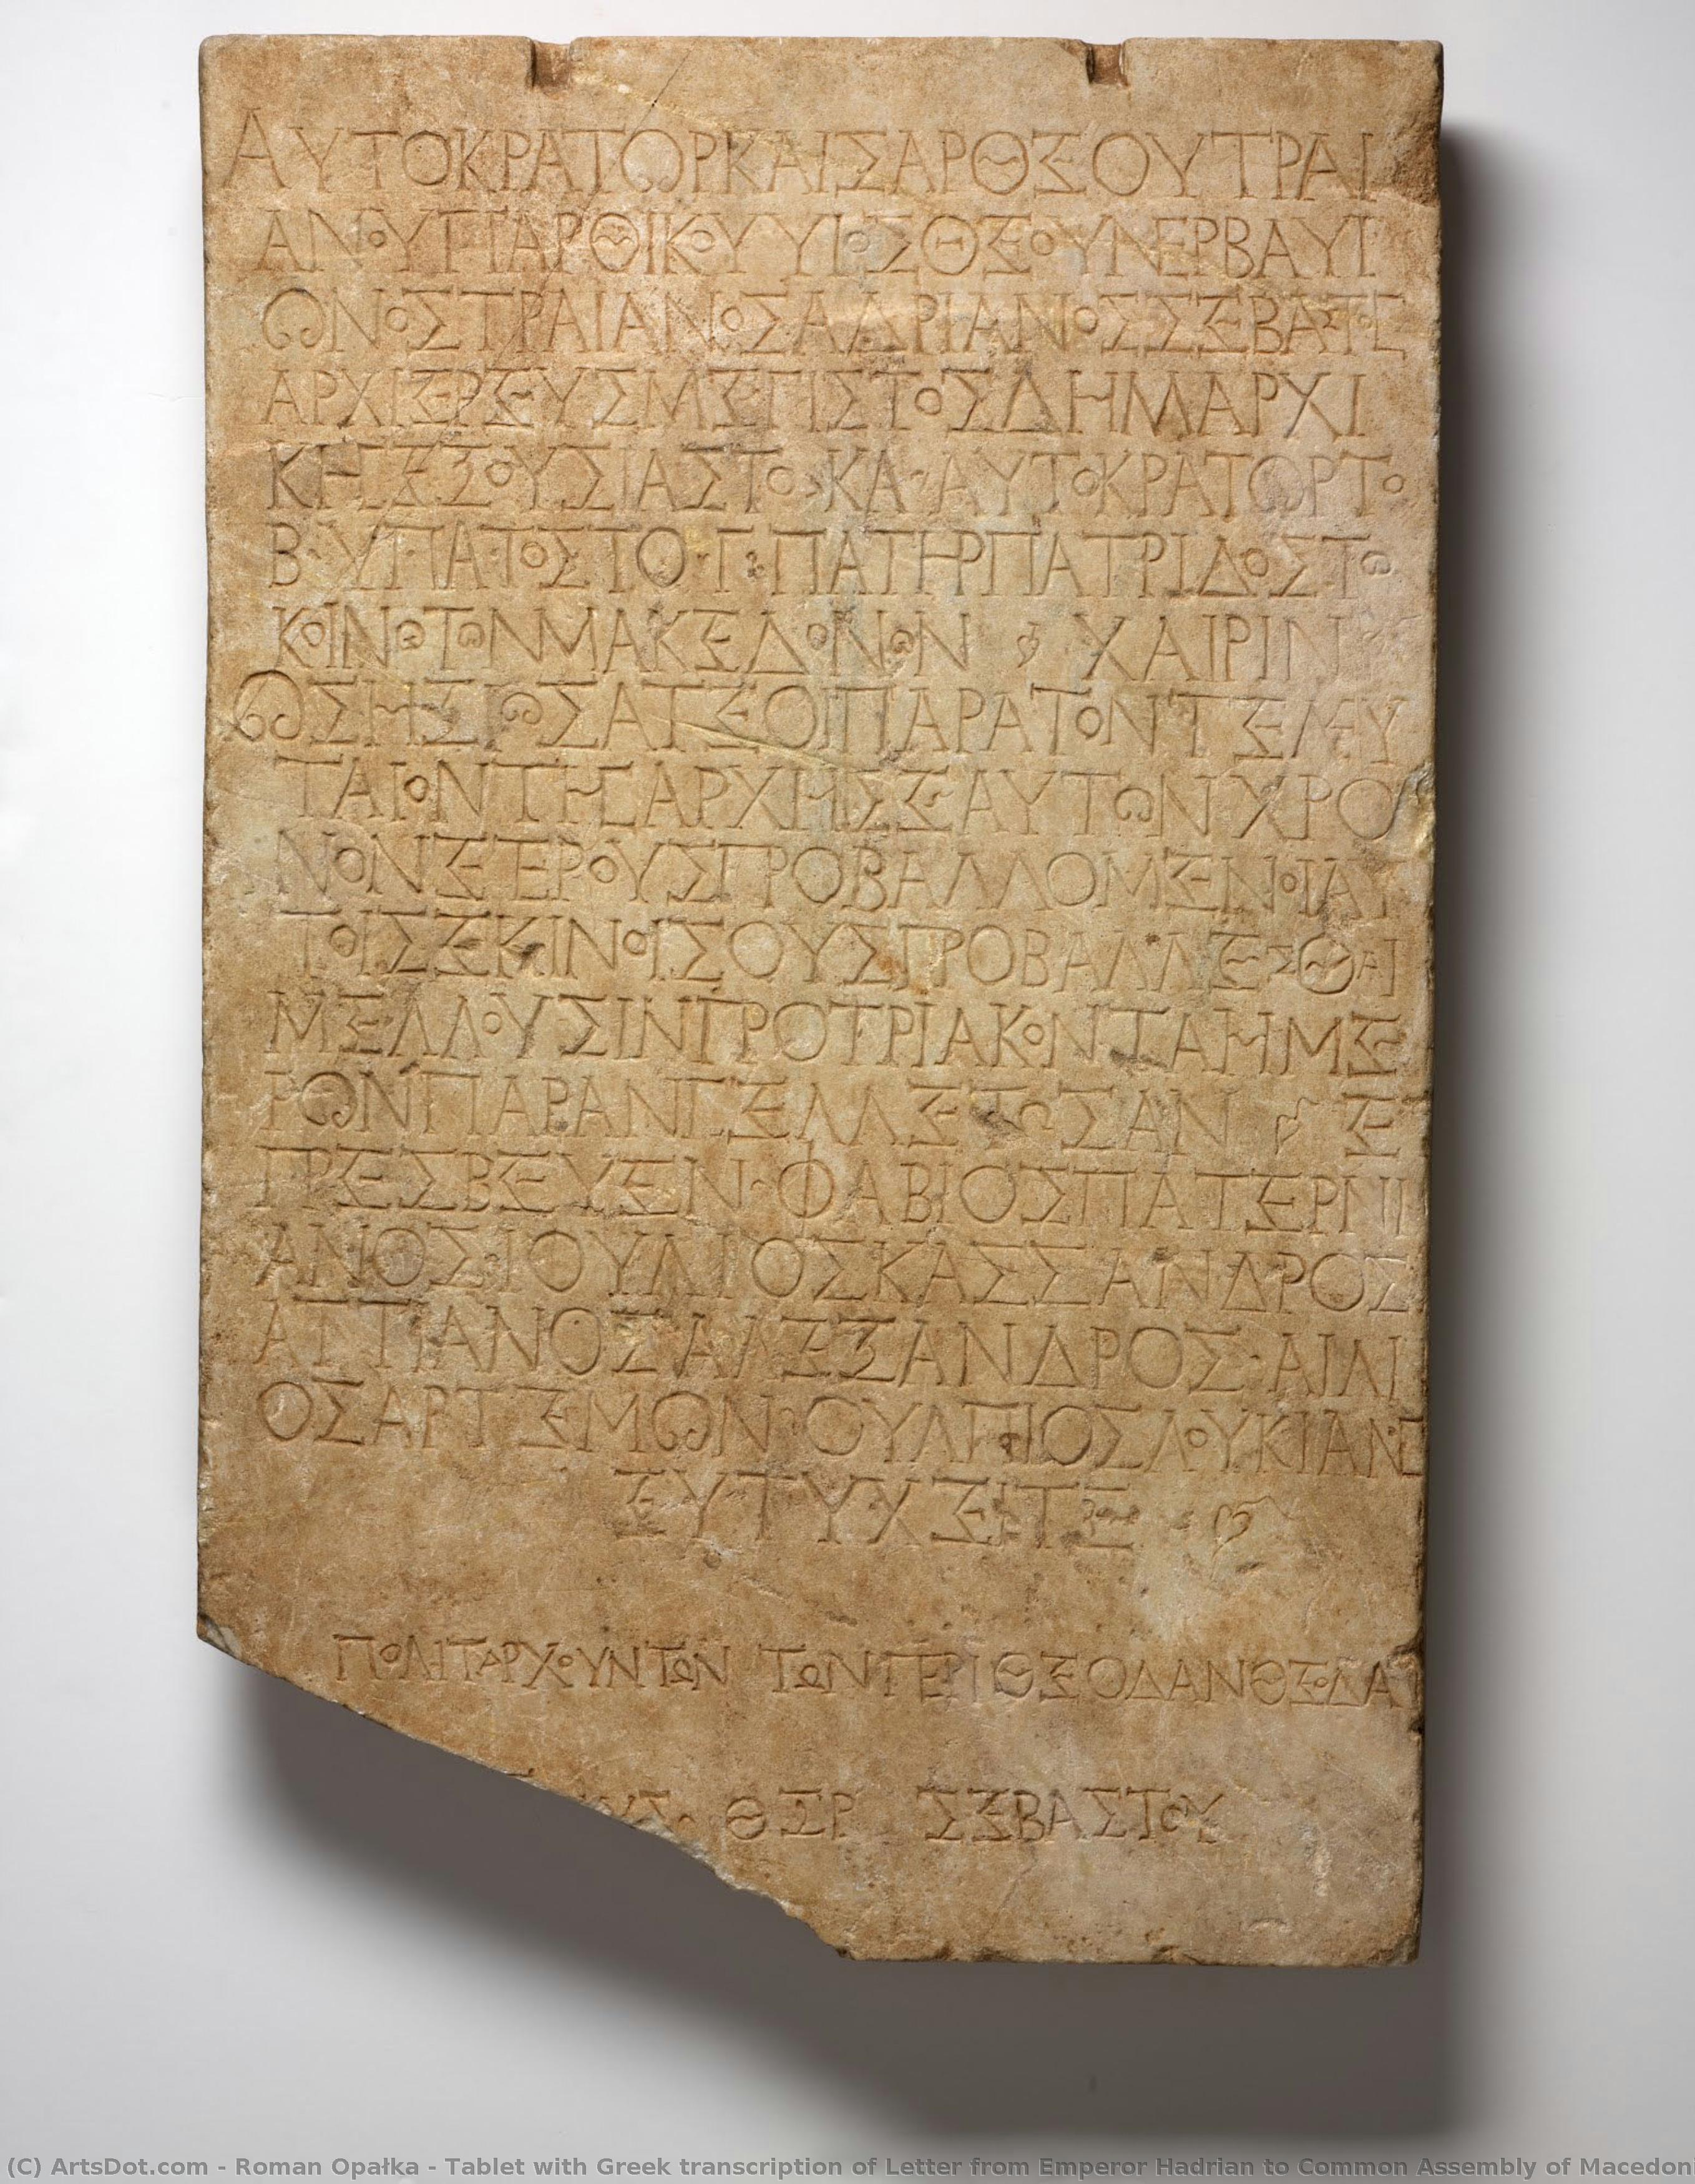 ΑΥΤΟΚΡΑΤΩΡΚΑΙΣΑΡΘΕΟΥΤΡΑΙ
ΑΝΟΥΠΑΡΘΙΚΟΥΥΙΟΣΘΕΟΥΝΕΡΒΑΥΙ
ΩΝΟΣΤΡΑΙΑΝΟΣΑΔΡΙΑΝΟΣΣΕΒΑΣΤΟΣ
ΑΡΧΙΕΡΕΥΣΜΕΓΙΣΤΟΣΔΗΜΑΡΧΙ
ΚΗΣΕΞΟΥΣΙΑΣΤΟ·ΚΑ·ΑΥΤΟΚΡΑΤΩΡΤΟ
Β·ΥΠΑΤΟΣΤΟ·Γ·ΠΑΤΗΡΠΑΤΡΙΔΟΣΤΩ
ΚΟΙΝΩΤΩΝΜΑΚΕΔΟΝΩΝ ❧ ΧΑΙΡΙΝ
ΩΣΗΕΓΩΣΑΤΕΟΙΠΑΡΑΤΟΝΤΕΛΕΥ
ΤΑΙΟΝΤΗΣΑΡΧΗΣΕΑΥΤΩΝΧΡΟ
ΝΟΝΕΤΕΡΟΥΣΠΡΟΒΑΛΛΟΜΕΝΟΙΑΥ
ΤΟΙΣΕΚΙΝΟΙΣΟΥΣΠΡΟΒΑΛΛΕΣΘΑΙ
ΜΕΛΛΟΥΣΙΝΠΡΟΤΡΙΑΚΟΝΤΑΗΜΕ
ΡΩΝΠΑΡΑΝΓΕΛΛΕΤΩΣΑΝ ❧ Ε
ΠΡΕΣΒΕΥΕΝ·ΦΑΒΙΟΣΠΑΤΕΡΝΙ
ΑΝΟΣ·ΙΟΥΛΙΟΣΚΑΣΣΑΝΔΡΟΣ
ΑΤΤΙΑΝΟΣΑΛΕΞΑΝΔΡΟΣ·ΑΙΛΙ
ΟΣΑΡΤΕΜΩΝ·ΟΥΛΠΙΟΣΛΟΥΚΙΑΝΟΣ
ΕΥΤΥΧΕΙΤΕ ❧
ΠΟΛΙΤΑΡΧΟΥΝΤΩΝ ΤΩΝΠΕΡΙΘΕΟΔΑΝΘΕΟΔΑ
ΘΞΡ ΣΕΒΑΣΤΟΥ
(C) ArtsDot.com - Roman Opałka - Tablet with Greek transcription of Letter from Emperor Hadrian to Common Assembly of Macedon